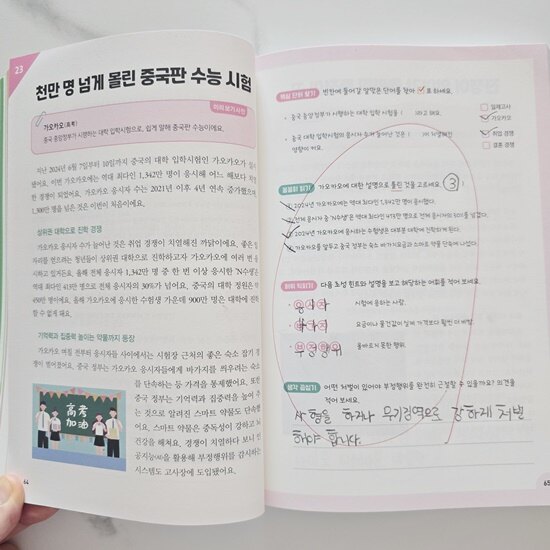 23
천만 명 넘게 몰린 중국판 수능 시험
미리 보기 사전
가오카오(高考)
중국 중앙정부가 시행하는 대학 입학시험으로, 쉽게 말해 중국판 수능이에요.
지난 2024년 6월 7일부터 10일까지 중국의 대학 입학시험인 가오카오가 실시
됐어요. 이번 가오카오에는 역대 최다인 1,342만 명이 응시해 어느 해보다 치열
한 경쟁이 되었어요. 가오카오 응시자 수는 2021년 이후 4년 연속 증가했으며,
1,300만 명을 넘은 것은 이번이 처음이에요.
상위권 대학으로 진학 경쟁
가오카오 응시자 수가 늘어난 것은 취업 경쟁이 치열해진 까닭이에요. 좋은 일
자리를 얻으려는 청년들이 상위권 대학으로 진학하고자 가오카오에 여러 번 응
시하고 있거든요. 올해 전체 응시자 1,342만 명 중 한 번 이상 응시한 'N수생'은
역대 최다인 413만 명으로 전체 응시자의 30%가 넘어요. 중국의 대학 정원은 약
450만 명이에요. 올해 가오카오에 응시한 수험생 가운데 900만 명은 대학에 진학
할 수 없게 돼요.
기억력과 집중력 높이는 약물까지 등장
가오카오 며칠 전부터 응시자들 사이에서는 시험장 근처의 좋은 숙소 잡기 경
쟁이 벌어졌어요. 중국 정부는 가오카오 응시자들에게 바가지를 씌우려는 숙소
를 단속하는 등 가격을 통제했어요. 또한
중국 정부는 기억력과 집중력을 높여 주
는 것으로 알려진 스마트 약물도 단속했
어요. 스마트 약물은 중독성이 강하고 뇌
건강을 해쳐요. 경쟁이 치열하다 보니 인
공지능(AI)을 활용해 부정행위를 감시하는
시스템도 고사장에 도입됐어요.
高考
加油
64
핵심 단어 찾기 빈칸에 들어갈 알맞은 단어를 찾아 ✓표 하세요.
• 중국 중앙정부가 시행하는 대학 입학 시험을 ( )라고 해요.
일제고사
가오카오
• 중국 대학 입학시험의 응시자 수가 늘어난 것은 ( )이 치열해진
영향이 커요.
취업 경쟁
결혼 경쟁
꼼꼼히 읽기 가오카오에 대한 설명으로 틀린 것을 고르세요. ( 3 )
① 2024년 가오카오에는 역대 최다인 1,342만 명이 응시했다.
② 전체 응시자 중 'N수생'은 역대 최다인 413만 명으로 전체 응시자의 30%를 넘겼다.
③ 2024년 가오카오에 응시한 수험생은 대부분 대학에 진학하게 된다.
④ 가오카오를 앞두고 중국 정부는 숙소 바가지요금과 스마트 약물 단속에 나섰다.
어휘 익히기 다음 초성 힌트와 설명을 보고 해당하는 어휘를 적어 보세요.
• 응시자 시험에 응하는 사람.
• 바가지 요금이나 물건값이 실제 가격보다 훨씬 더 비쌈.
• 부정행위 올바르지 못한 행위.
생각 곱씹기 어떤 처벌이 있어야 부정행위를 완전히 근절할 수 있을까요? 의견을
적어 보세요.
사형을 하거나 무기징역으로 강하게 처벌
해야 합니다.
65